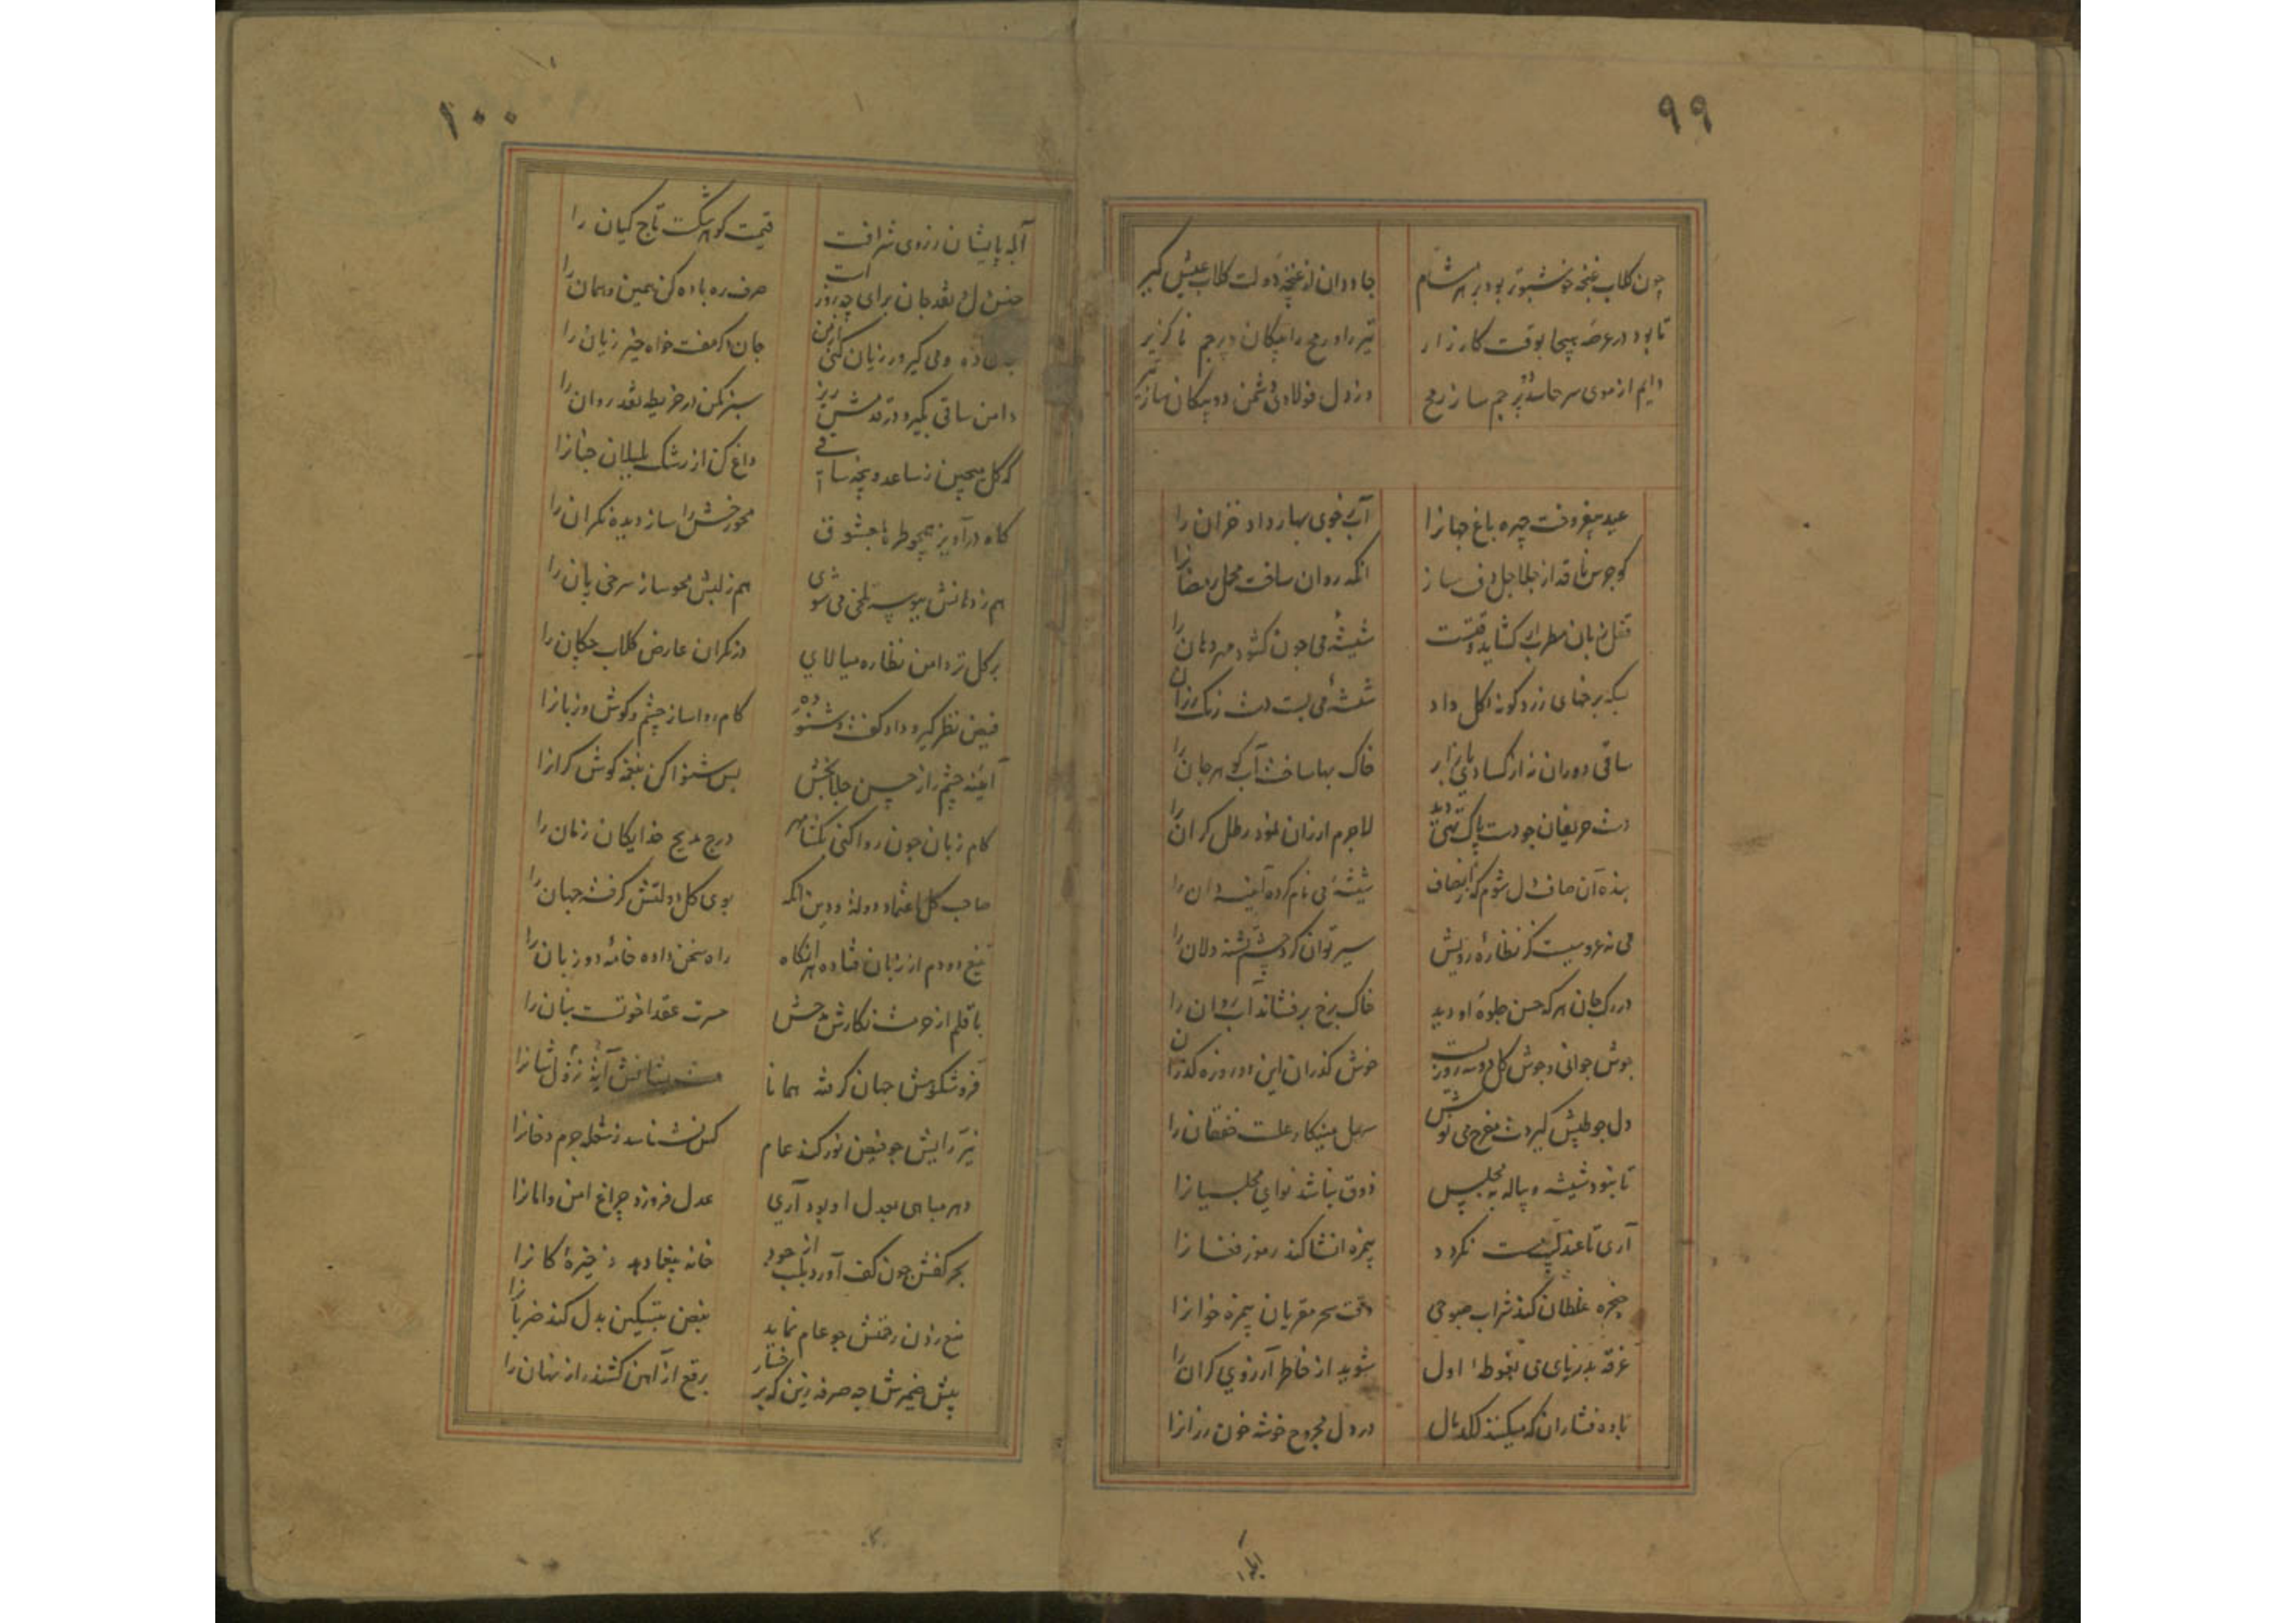 ۹۹
چون کلاب غنچه خوشبوتر بود بر هر مشام جاودان از غنچه دولت کلاب عیش کیر
تا بود در عرصه هیجا بوقت کارزار تیر را و رمح را پیکان و پرچم ناکزیر
دایم از موی سر حاسد پرچم ساز رمح وز دل فولادی دشمن دو پیکان ساز تیر
عید برافروخت چهره باغ جهانرا آب خوی بهار داد خزان را
کو جرس ناقه از جلاجل دف ساز آنکه روان ساخت محمل رمضانرا
قفل زبان مطرب ار کشاید وقتست شیشه می چون کشود مهر دهان را
بسکه برخهای زرد کونه کل داد شیشه می بست دست رنک رزان را
ساقی دوران نه از کسادی بازار خاک بها ساخت آب کوهر جان را
دست حریفان چو دست پاک تهی دید لاجرم ارزان نمود رطل کران را
بنده آن صاف دل شوم که ز انصاف شیشه می نام کرده آینه دان را
می نه عروسیست کز نظاره رویش سیر توان کرد چشم تشنه دلان را
در رک جان هر که حسن جلوه او دید خاک برخ برفشاند آب روان را
جوش جوانی و جوش کل دو سه روزیست خوش کذران این دو روزه کذران را
دل چو طپش کیردت مفرح می نوش سهل مینکار علت خفقان را
تا نبود شیشه و پیاله به مجلس ذوق نباشد نوای مجلسیانرا
آری تا عندلیب مست نکردد بیمزه انشا کند رموز فغانرا
حنجره غلطان کند شراب صبوحی وقت سحر مقریان بیمزه خوانرا
غرقه بدریای می بغوطه اول شوید از خاطر آرزوی کران را
باده فشاران که میکنند لکدمال در دل مجروح خوشه خون رزانرا
۱۰۰
آبله پایشان ز روی شرافت قیمت کوهر شکست تاج کیان را
جنس دل و نقد جان برای چه روز است صرف ره باده کن همین و همان را
ده و می کیر ور زیان کنی از من جان که مفت خواه خیر زیان را
دامن ساقی بکیر و در قدمش ریز سبز مکن در خریطه نقد روان را
که کل میچین ز ساعد و پنجه ساقی داغ کن از رشک بلبلان جنانرا
کاه درآویز همچو طره با معشوق محو رخش ساز دیده نکران را
هم ز دهانش ببوسه تلخی می شوی هم ز لبش محو ساز سرخی پان را
بر کل تر دامن نظاره میالای وز نکران عارض کلاب چکان را
فیض نظر کیر و داد کفت و شنو ده کام روا ساز چشم و کوش و زبانرا
آینه چشم را ز حسن جلا بخش بس شنوا کن بنغمه کوش کرانرا
کام زبان چون روا کنی بکشا مهر درج مدیح خدایکان زمان را
صاحب کل اعتماد دولة و دین آنکه بوی کل دولتش کرفت جهان را
تیغ دو دم از زبان فتاده هر آنکاه راه سخن داده خامه دو زبان را
با قلم از حرمت نکارش مدحش حسرت عقد اخوتست بنان را
فر و شکوهش جهان کرفته همانا آیه نزول شانرا
نیر رایش چو فیض نور کند عام کس نشناسد ز شعله جرم دخانرا
دهر مباهی بعدل او بود آری عدل فروزد چراغ امن و امانرا
بحر کفش چون کف آورد بلب از جود خانه بیغما دهد ذخیره کانرا
منع زدن رفتش چو عام نماید نبض بتسکین بدل کند ضربانرا
پیش ضمیرش چه صرفه زین که بر رخسار برقع از آهن کشند راز نهان را